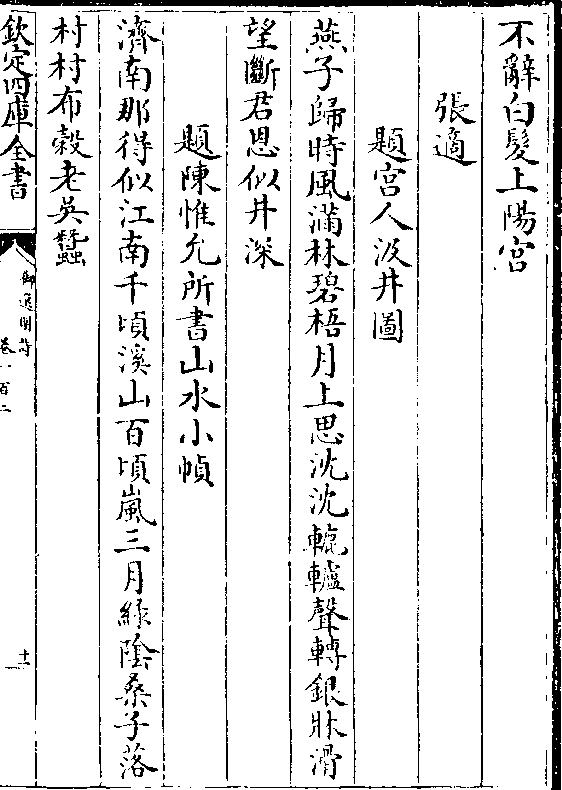 不辭白髮上陽宮
張適
題宮人汲井圖
燕子歸時風滿林碧梧月上思沈沈轆轤聲轉銀牀滑
望斷君恩似井深
題陳惟允所書山水小幀
濟南那得似江南千頃溪山百頃嵐三月綠陰桑子落
村村布穀老吳蠶
欽定四庫全書
御選明詩
卷一百二
十一